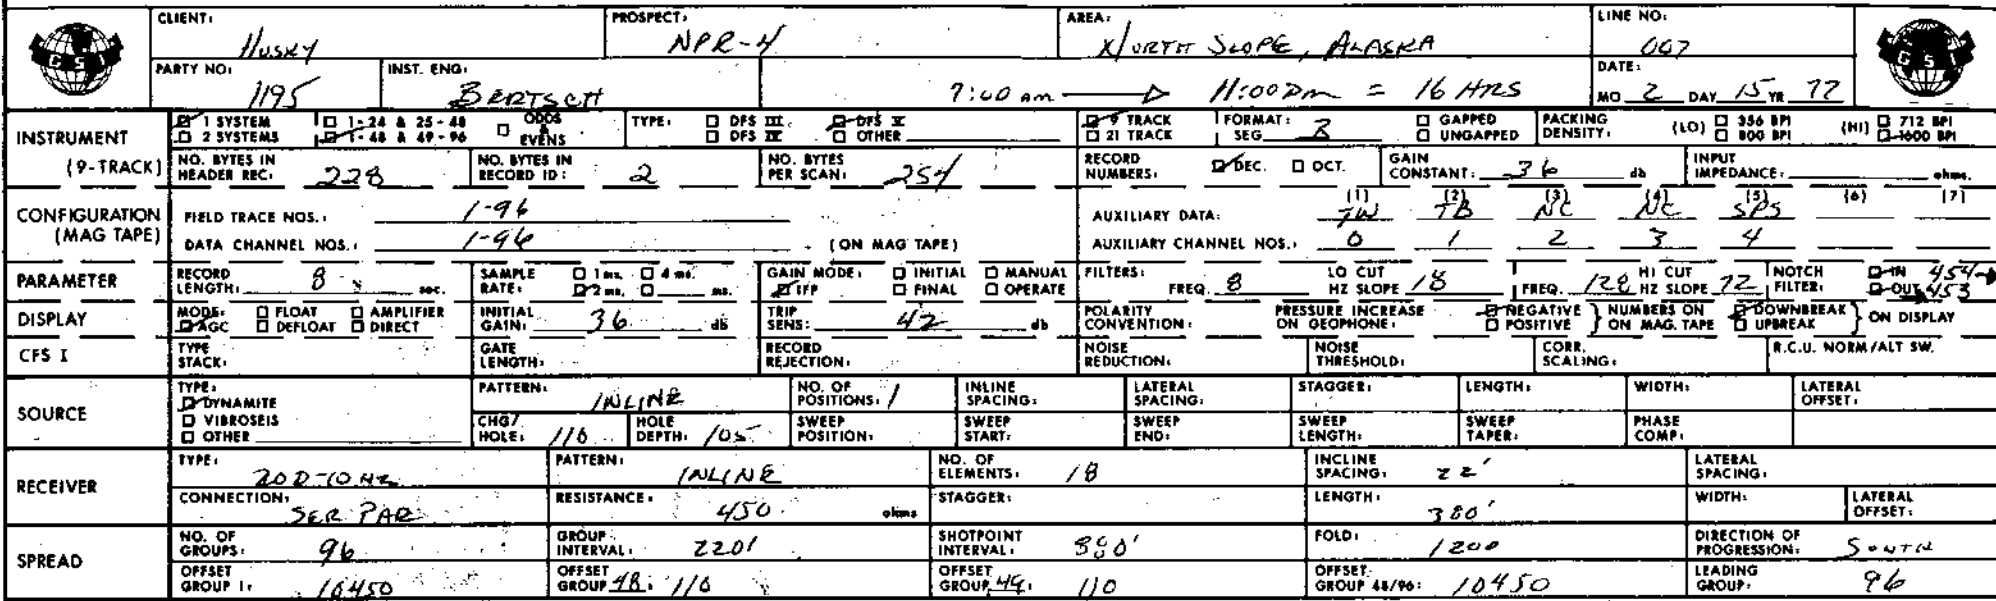 CLIENT: Husky PROSPECT: NPR-4 AREA: NORTH SLOPE, ALASKA LINE NO: 007
GSI GSI
PARTY NO: 1195 INST. ENG: BERTSCH 7:00 am → 11:00 pm = 16 HRS DATE: MO 2 DAY 15 YR 77
INSTRUMENT (9-TRACK)
☑ 1 SYSTEM ☐ 1-24 & 25-48 ☐ ODDS & EVENS TYPE: ☐ DFS III ☑ DFS V ☑ 9 TRACK FORMAT: SEG ☐ GAPPED PACKING DENSITY: (LO) ☐ 356 BPI (HI) ☐ 712 BPI
☐ 2 SYSTEMS ☑ 1-48 & 49-96 ☐ DFS IV ☐ OTHER ☐ 21 TRACK ☐ UNGAPPED ☐ 800 BPI ☑ 1600 BPI
NO. BYTES IN HEADER REC: 228 NO. BYTES IN RECORD ID: 2 NO. BYTES PER SCAN: 254 RECORD NUMBERS: ☑ DEC. ☐ OCT. GAIN CONSTANT: 36 db INPUT IMPEDANCE: ohms.
CONFIGURATION (MAG TAPE)
FIELD TRACE NOS.: 1-96 AUXILIARY DATA: (1) TW (2) TB (3) NC (4) NC (5) SPS (6) (7)
DATA CHANNEL NOS.: 1-96 (ON MAG TAPE) AUXILIARY CHANNEL NOS.: 0 1 2 3 4
PARAMETER RECORD LENGTH: 8 sec. SAMPLE RATE: ☐ 1 ms. ☐ 4 ms. ☑ 2 ms. ☐ ms. GAIN MODE: ☐ INITIAL ☐ MANUAL ☑ IFP ☐ FINAL ☐ OPERATE FILTERS: FREQ. 8 LO CUT HZ SLOPE 18 FREQ. 128 HI CUT HZ SLOPE 72 NOTCH FILTER: ☑ IN 454→ ☑ OUT →453
DISPLAY MODE: ☐ FLOAT ☐ AMPLIFIER ☑ AGC ☐ DEFLOAT ☐ DIRECT INITIAL GAIN: 36 db TRIP SENS: 42 db POLARITY CONVENTION: PRESSURE INCREASE ON GEOPHONE: ☑ NEGATIVE ☐ POSITIVE } NUMBERS ON ON MAG. TAPE ☑ DOWNBREAK ☐ UPBREAK } ON DISPLAY
CFS I TYPE STACK: GATE LENGTH: RECORD REJECTION: NOISE REDUCTION: NOISE THRESHOLD: CORR. SCALING: R.C.U. NORM/ALT SW.
SOURCE
TYPE: ☑ DYNAMITE ☐ VIBROSEIS ☐ OTHER PATTERN: INLINE NO. OF POSITIONS: 1 INLINE SPACING: LATERAL SPACING: STAGGER: LENGTH: WIDTH: LATERAL OFFSET:
CHG/HOLE: 110 HOLE DEPTH: 105 SWEEP POSITION: SWEEP START: SWEEP END: SWEEP LENGTH: SWEEP TAPER: PHASE COMP:
RECEIVER
TYPE: 20D-10HZ PATTERN: INLINE NO. OF ELEMENTS: 18 INCLINE SPACING: 22' LATERAL SPACING:
CONNECTION: SER PAR RESISTANCE: 450 ohms STAGGER: LENGTH: 380' WIDTH: LATERAL OFFSET:
SPREAD
NO. OF GROUPS: 96 GROUP INTERVAL: 220' SHOTPOINT INTERVAL: FOLD: 1200 DIRECTION OF PROGRESSION: SOUTH
OFFSET GROUP 1: 10450 OFFSET GROUP 48: 110 OFFSET GROUP 49: 110 OFFSET GROUP 48/96: 10450 LEADING GROUP: 96